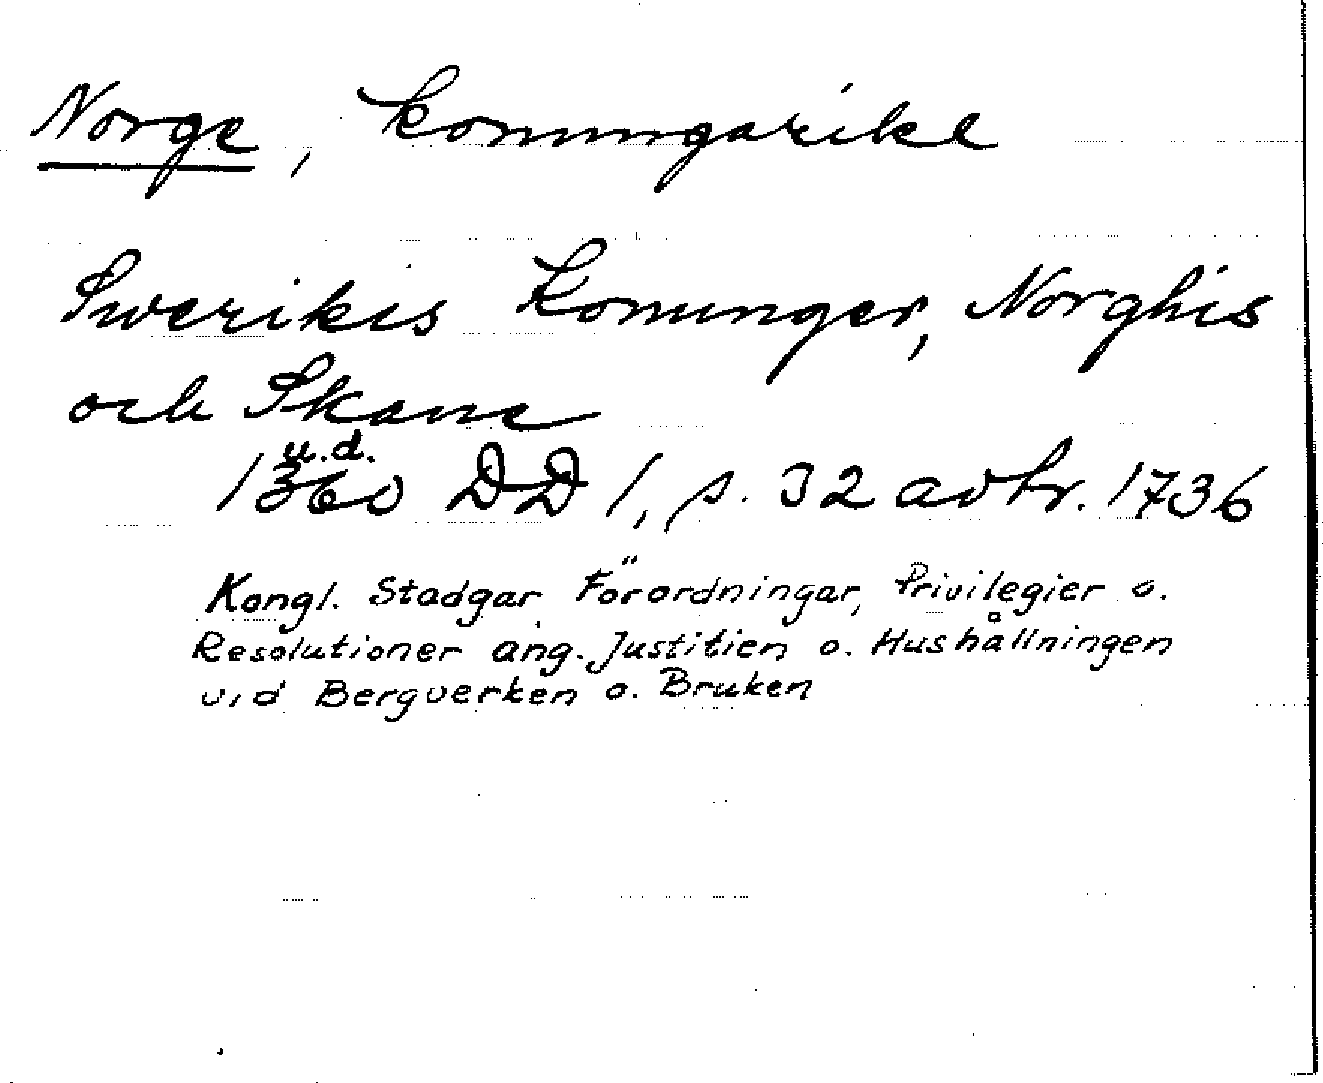 Norge, konungarike
Swerikis Konunger, Norghis
och Skane
u.d.
1360 DD 1, s. 32 avtr. 1736
Kongl. Stadgar Förordningar, Privilegier o.
Resolutioner ang. Justitien o. Hushållningen
vid Bergverken o. Bruken